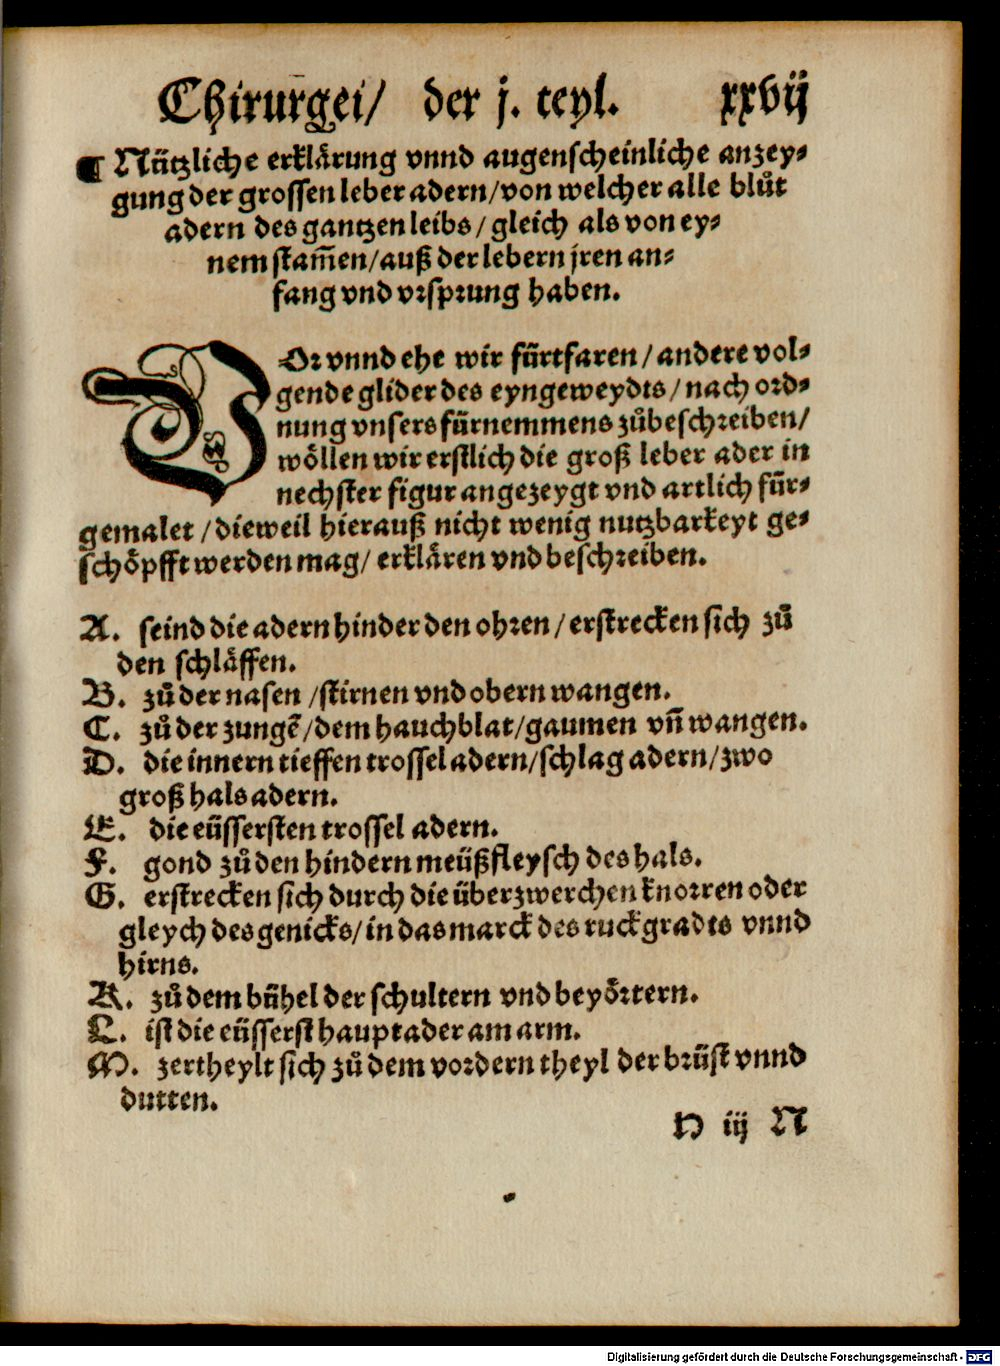 Chirurgei/ der j. teyl. xxvij
¶ Nützliche erklärung vnnd augenscheinliche anzey⸗
gung der grossen leber adern/von welcher alle blůt
adern des gantzen leibs/gleich als von ey⸗
nem stam̃en/auß der lebern jren an⸗
fang vnd vrsprung haben.
VOr vnnd ehe wir fürtfaren/andere vol⸗
gende glider des eyngeweydts/nach ord⸗
nung vnsers fürnemmens zůbeschreiben/
wöllen wir erstlich die groß leber ader in
nechster figur angezeygt vnd artlich für⸗
gemalet/dieweil hierauß nicht wenig nutzbarkeyt ge⸗
schöpfft werden mag/ erklären vnd beschreiben.
A. seind die adern hinder den ohren/erstrecken sich zů
den schläffen.
B. zů der nasen /stirnen vnd obern wangen.
C. zů der zungẽ/dem hauchblat/gaumen vñ wangen.
D. die innern tieffen trossel adern/schlag adern/zwo
groß hals adern.
E. die eüssersten trossel adern.
F. gond zů den hindern meüßfleysch des hals.
G. erstrecken sich durch die überzwerchen knorren oder
gleych des genicks/in das marck des ruckgradts vnnd
hirns.
K. zů dem bühel der schultern vnd beyörtern.
L. ist die eüsserst hauptader am arm.
M. zertheylt sich zů dem vordern theyl der brüst vnnd
dutten.
D iij N
Digitalisierung gefördert durch die Deutsche Forschungsgemeinschaft - DFG